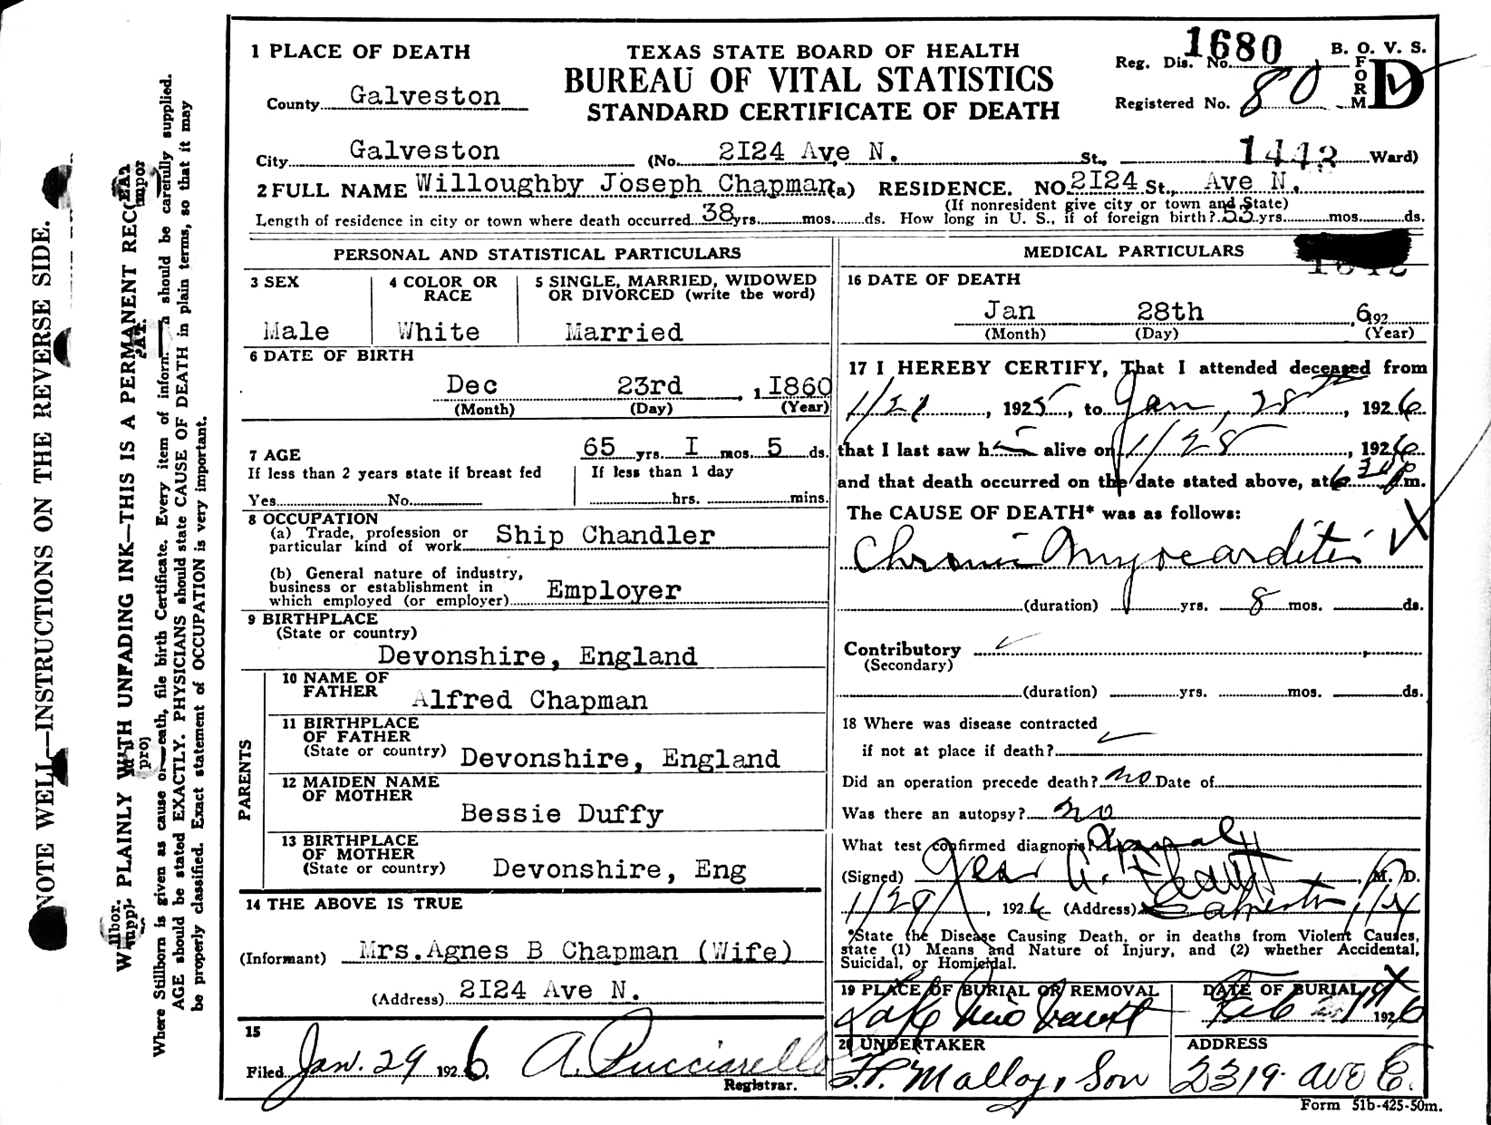 1 PLACE OF DEATH
TEXAS STATE BOARD OF HEALTH
BUREAU OF VITAL STATISTICS
STANDARD CERTIFICATE OF DEATH
Reg. Dis. No. 1680
B. O. V. S.
FORM D
Registered No. 80
County Galveston
City Galveston (No. 2I24 Ave N. St., 1442 Ward)
2 FULL NAME Willoughby Joseph Chapman (a) RESIDENCE. NO. 2I24 St., Ave N.
(If nonresident give city or town and State)
Length of residence in city or town where death occurred 38 yrs. mos. ds. How long in U. S., if of foreign birth? 53 yrs. mos. ds.
PERSONAL AND STATISTICAL PARTICULARS
3 SEX
Male
4 COLOR OR RACE
White
5 SINGLE, MARRIED, WIDOWED
OR DIVORCED (write the word)
Married
6 DATE OF BIRTH
Dec 23rd , 1 I860
(Month) (Day) (Year)
7 AGE 65 yrs. I mos. 5 ds.
If less than 2 years state if breast fed
Yes No.
If less than 1 day
hrs. mins.
8 OCCUPATION
(a) Trade, profession or
particular kind of work Ship Chandler
(b) General nature of industry,
business or establishment in
which employed (or employer) Employer
9 BIRTHPLACE
(State or country)
Devonshire, England
PARENTS
10 NAME OF
FATHER Alfred Chapman
11 BIRTHPLACE
OF FATHER
(State or country) Devonshire, England
12 MAIDEN NAME
OF MOTHER
Bessie Duffy
13 BIRTHPLACE
OF MOTHER
(State or country) Devonshire, Eng
14 THE ABOVE IS TRUE
(Informant) Mrs.Agnes B Chapman (Wife)
(Address) 2I24 Ave N.
15
Filed Jan. 29 192 6. A. Pucciarello
Registrar.
MEDICAL PARTICULARS
16 DATE OF DEATH
Jan 28th , 6 192
(Month) (Day) (Year)
17 I HEREBY CERTIFY, That I attended deceased from
1/21 , 1925, to Jan, 28th , 1926
that I last saw h alive on 1/28 , 1926
and that death occurred on the date stated above, at 6 30 p m.
The CAUSE OF DEATH* was as follows:
Chronic Myocarditis X
(duration) yrs. 8 mos. ds.
Contributory
(Secondary)
(duration) yrs. mos. ds.
18 Where was disease contracted
if not at place if death?
Did an operation precede death? no Date of
Was there an autopsy? no
What test confirmed diagnosis?
(Signed) M. D.
1/29/ , 1926 (Address) Galveston, Tx
*State the Disease Causing Death, or in deaths from Violent Causes,
state (1) Means and Nature of Injury, and (2) whether Accidental,
Suicidal, or Homicidal.
19 PLACE OF BURIAL OR REMOVAL
Lake View
DATE OF BURIAL
Feb 1st 1926
20 UNDERTAKER
F.P. Malloy & Son
ADDRESS
2319 Ave E.
Form 51b-425-50m.
NOTE WELL—INSTRUCTIONS ON THE REVERSE SIDE.
PLAINLY WITH UNFADING INK—THIS IS A PERMANENT
Where Stillborn is given as cause of file birth Certificate. Every item of should be carefully supplied.
AGE should be stated EXACTLY. PHYSICIANS should state CAUSE OF DEATH in plain terms, so that it may
be properly classified. Exact statement of OCCUPATION is very important.